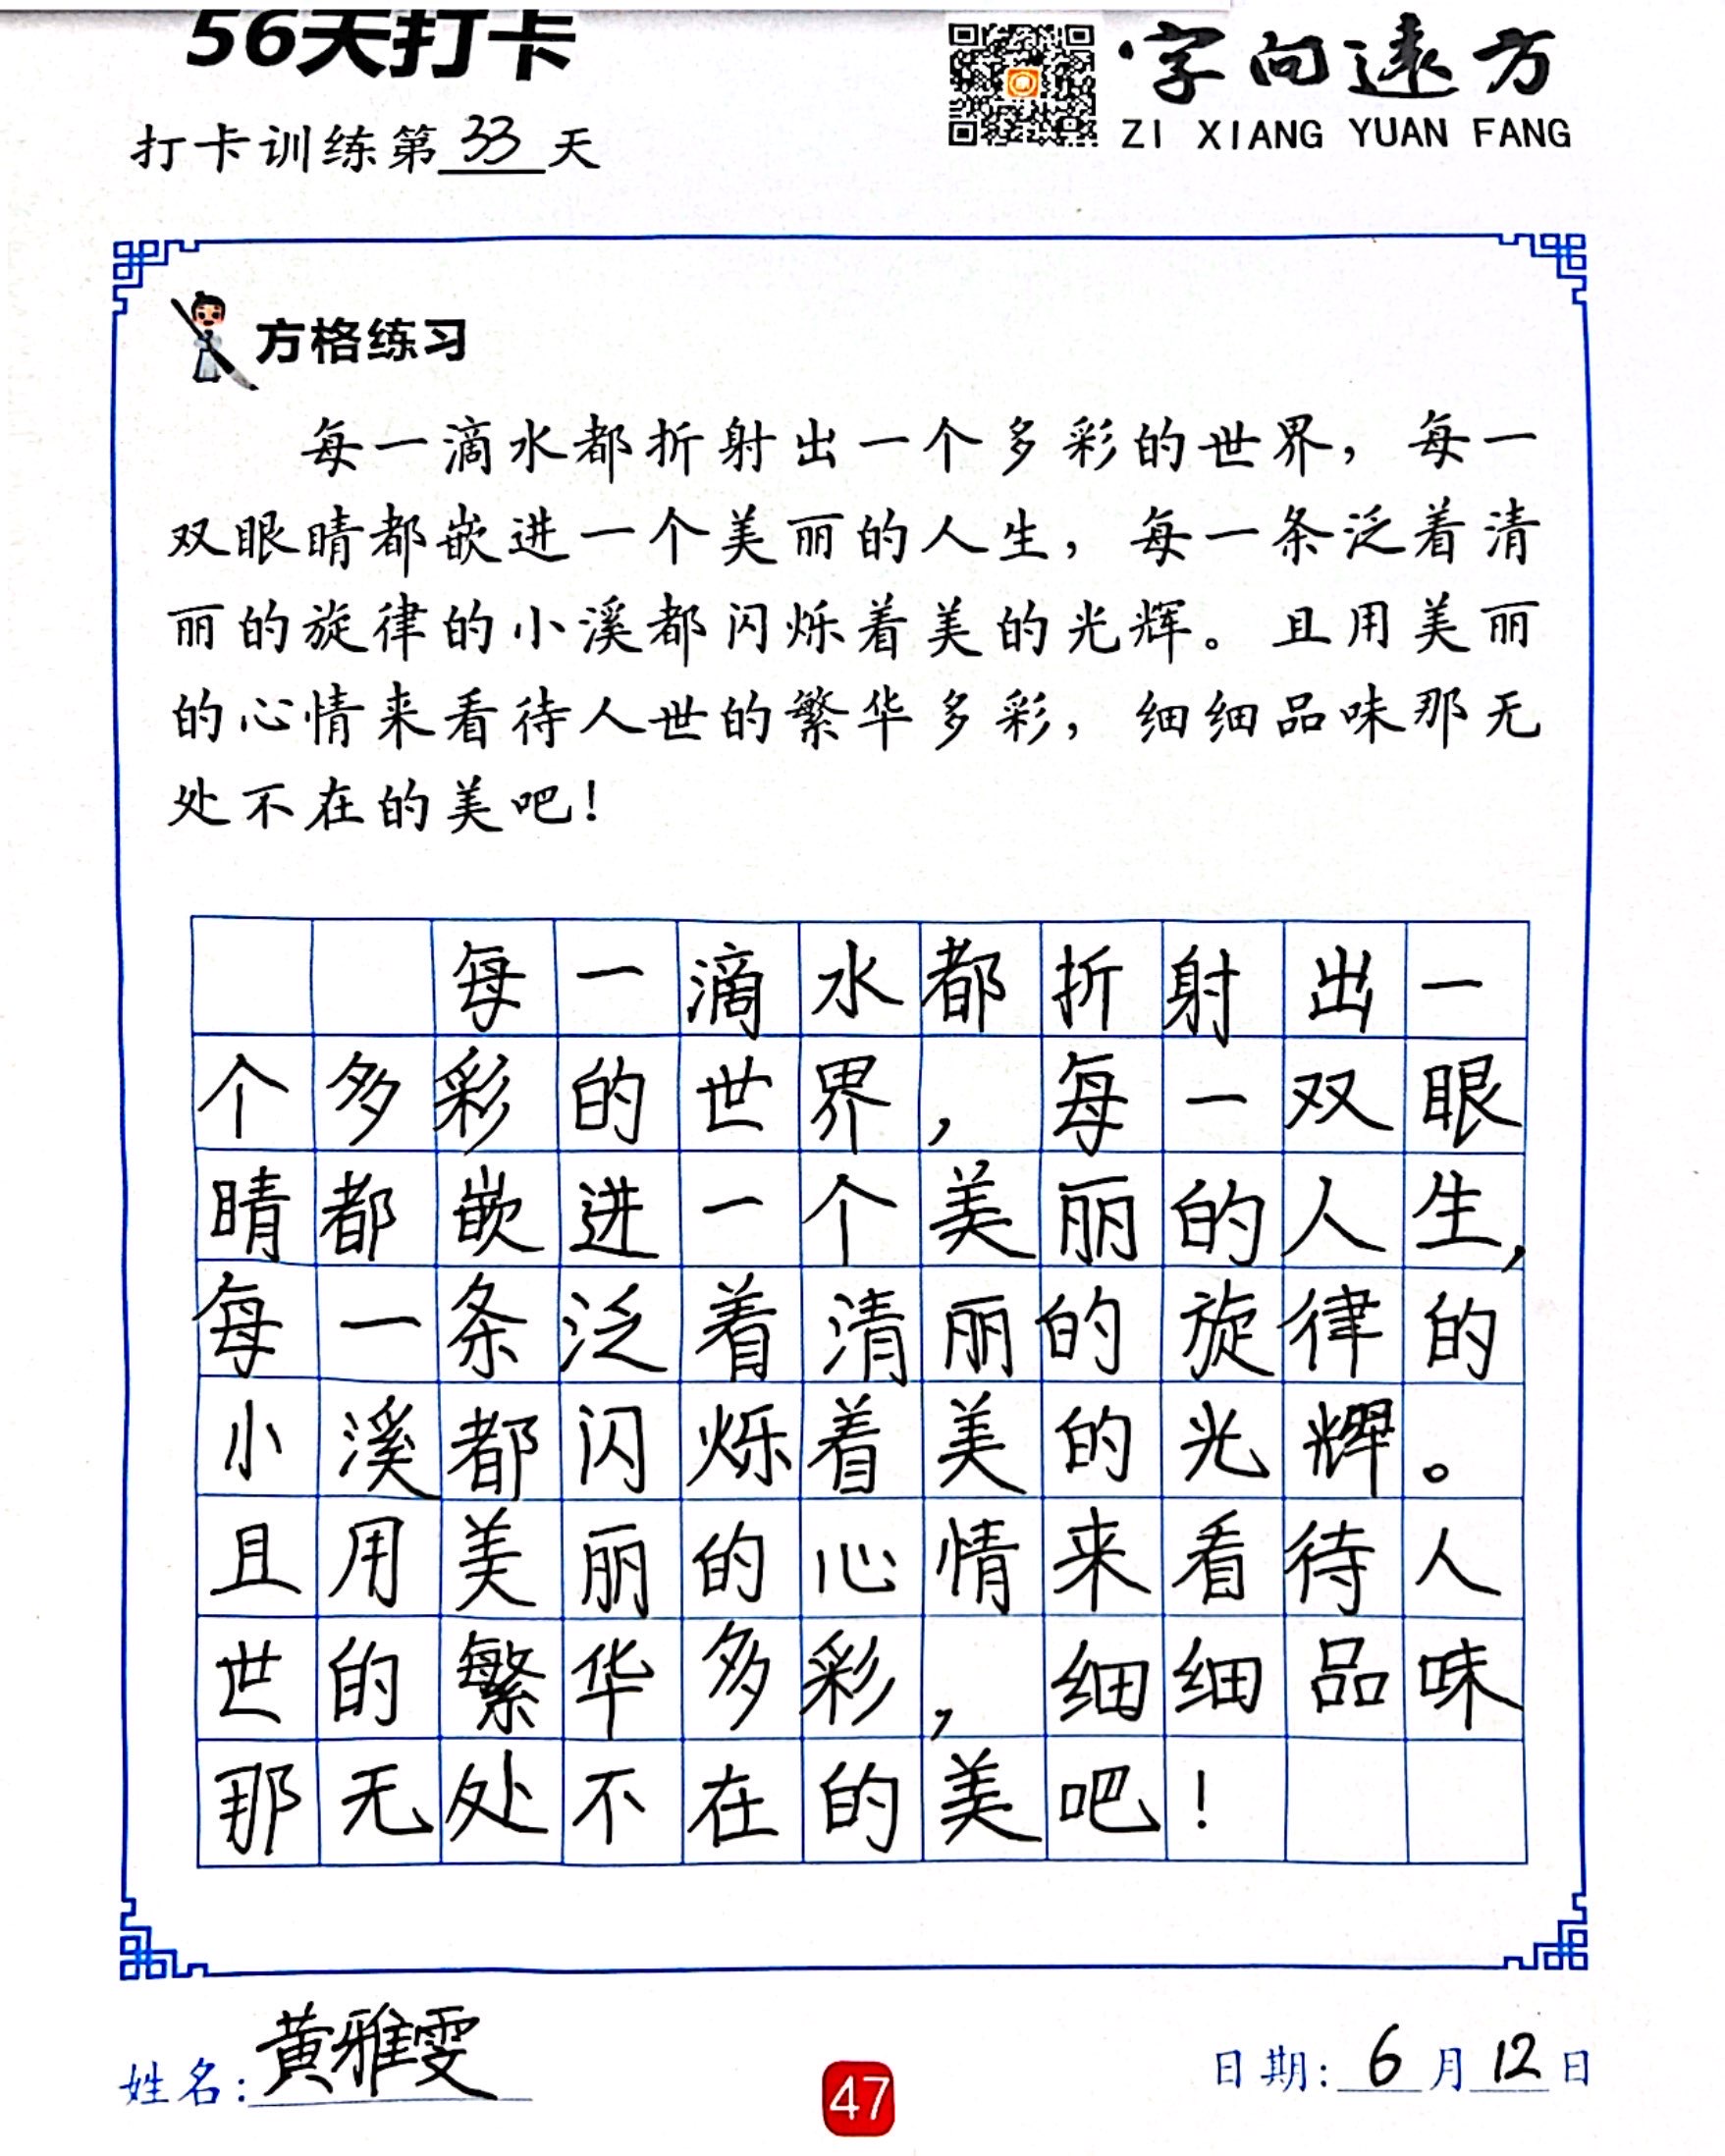 56天打卡
字向遠方
ZI XIANG YUAN FANG
打卡训练第33天
方格练习
每一滴水都折射出一个多彩的世界，每一
双眼睛都嵌进一个美丽的人生，每一条泛着清
丽的旋律的小溪都闪烁着美的光辉。且用美丽
的心情来看待人世的繁华多彩，细细品味那无
处不在的美吧！
每一滴水都折射出一
个多彩的世界，每一双眼
睛都嵌进一个美丽的人生，
每一条泛着清丽的旋律的
小溪都闪烁着美的光辉。
且用美丽的心情来看待人
世的繁华多彩，细细品味
那无处不在的美吧！
姓名：黄雅雯
47
日期：6月12日